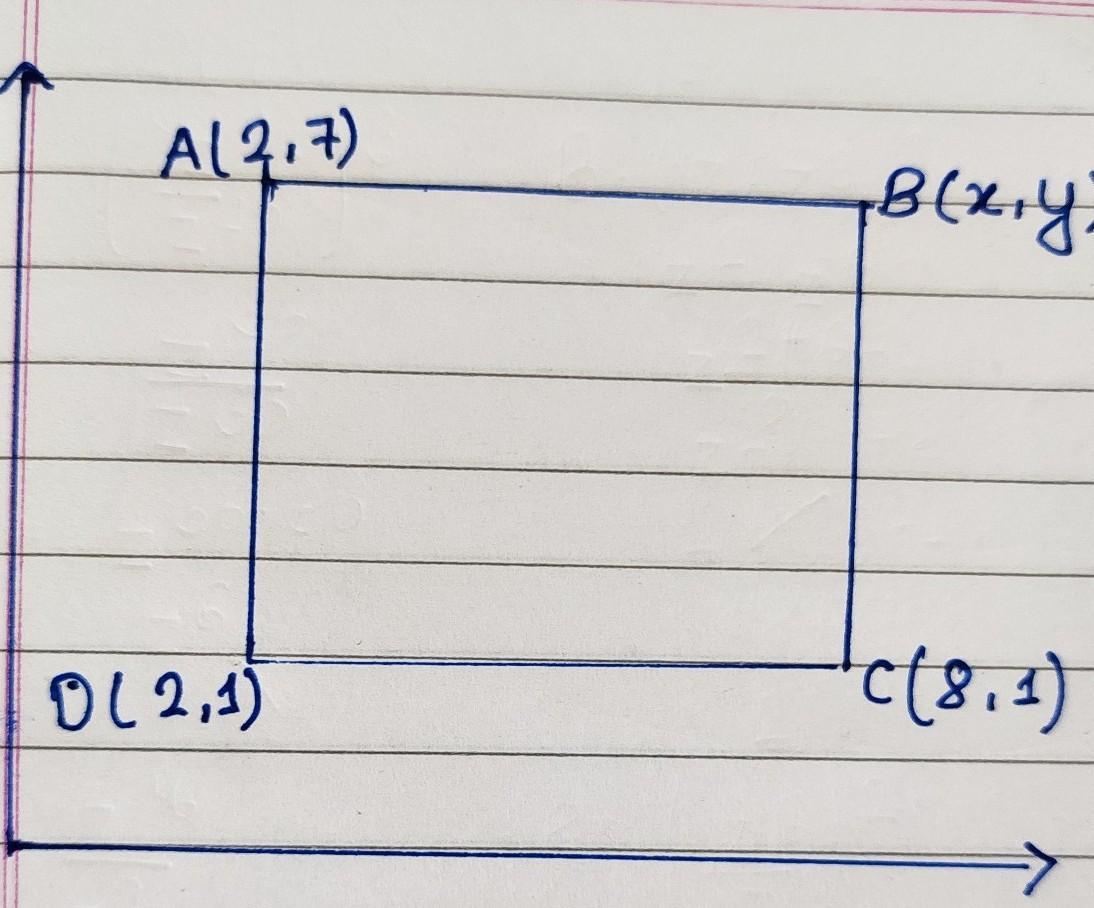 A(2,7)
B(x,y)
D(2,1)
C(8,1)